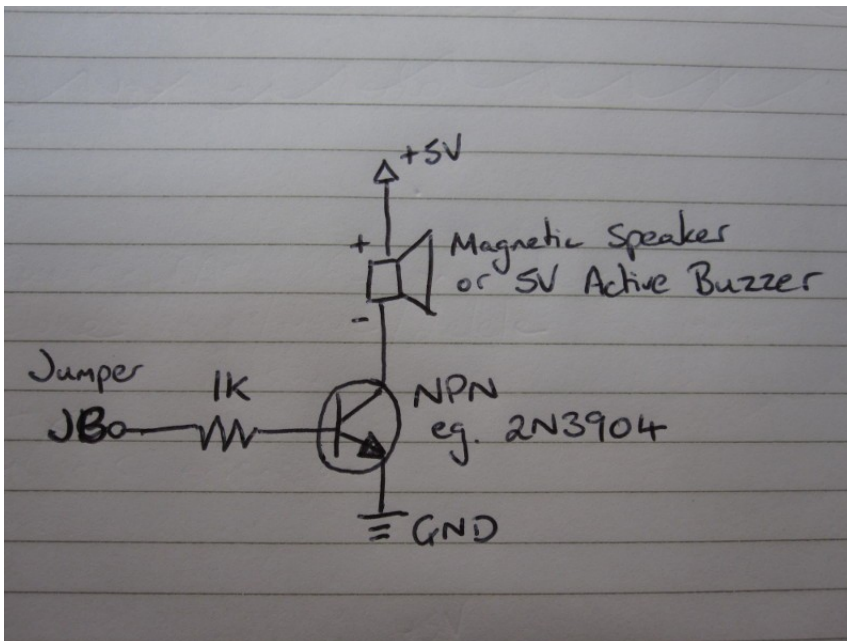 +5V
+
Magnetic Speaker
or 5V Active Buzzer
-
Jumper
1K
NPN
JB
eg. 2N3904
GND